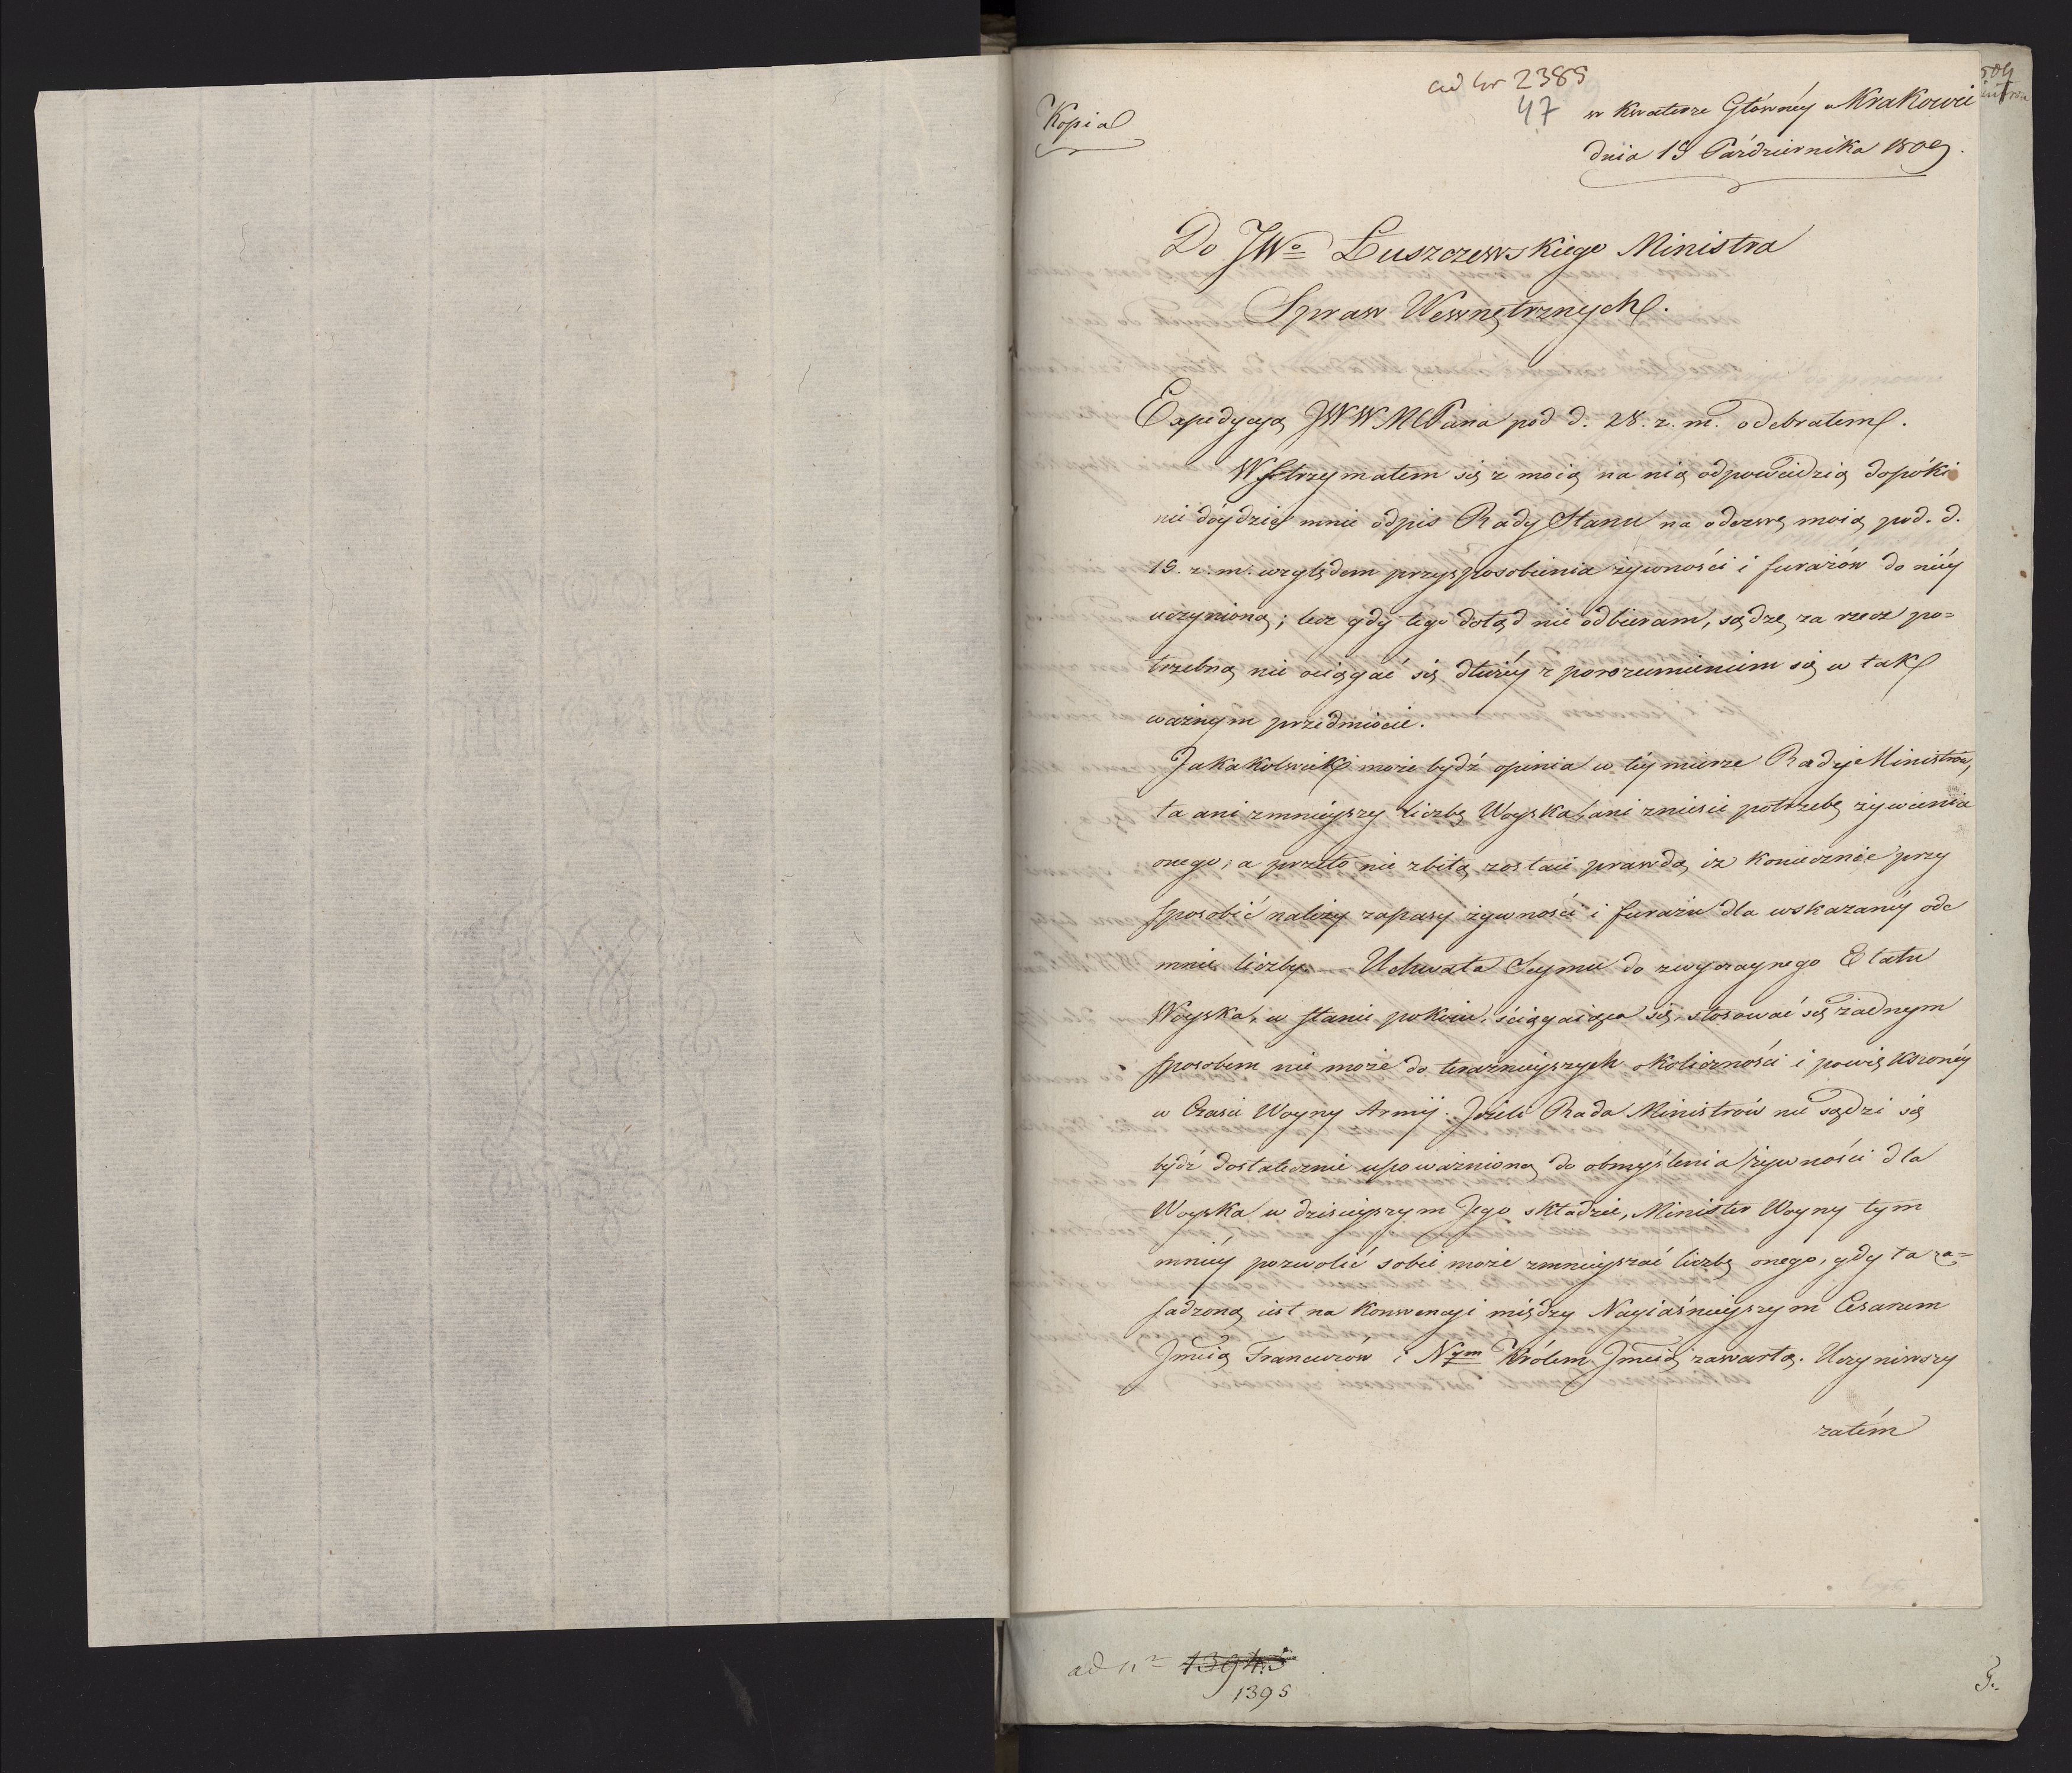 ad Nr 2385
47
Kopia
w Kwaterze Głównéy w Krakowie
dnia 15 Października 1809.
Do JWo Łuszczewskiego Ministra
Spraw Wewnętrznych.
Expedycyą JWWMCPana pod d. 28. z. m. odebrałem.
Wstrzymałem się z moią na nią odpowiedzią dopóki
nie dóydzie mnie odpis Rady Stanu na odezwę moią pod. d.
19. z. m. względem przysposobienia żywności i furażów do niéy
uczynioną; lecz gdy tego dotąd nie odbieram, sądzę za rzecz po=
trzebną nie ociągać się dłużéy z porozumieniem się w tak
ważnym przedmiocie.
Jakakolwiek może bydź opinia w téy mierze Rady Ministrów,
ta ani zmnieyszy liczby Woyska, ani zniesie potrzebę żywienia
onego; a przeto nie zbitą zostaie prawdą, iż koniecznie przy
sposobić należy zapasy żywności i furażu dla wskazanéy ode
mnie liczby. Uchwała Seymu do zwyczaynego Etatu
Woyska, w stanie pokoiu, ściągaiąca się, stosować się żadnym
sposobem nie może do teraznieyszych okoliczności i powiększonéy
w Czasie Woyny Armij. Jeżeli Rada Ministrów nie sądzi się
bydź dostatecznie upoważnioną do obmyślenia żywności dla
Woyska w dzisieyszym Jego składzie, Minister Woyny tym
mniéy pozwolić sobie może zmnieyszać liczbę onego, gdy ta za=
sadzoną iest na Konwencyi między Nayiaśnieyszym Cesarzem
Jmcią Francuzów i Nym Królem Jmcią zawartą. Uczyniwszy
zatém
ad nr 1394.5
1395